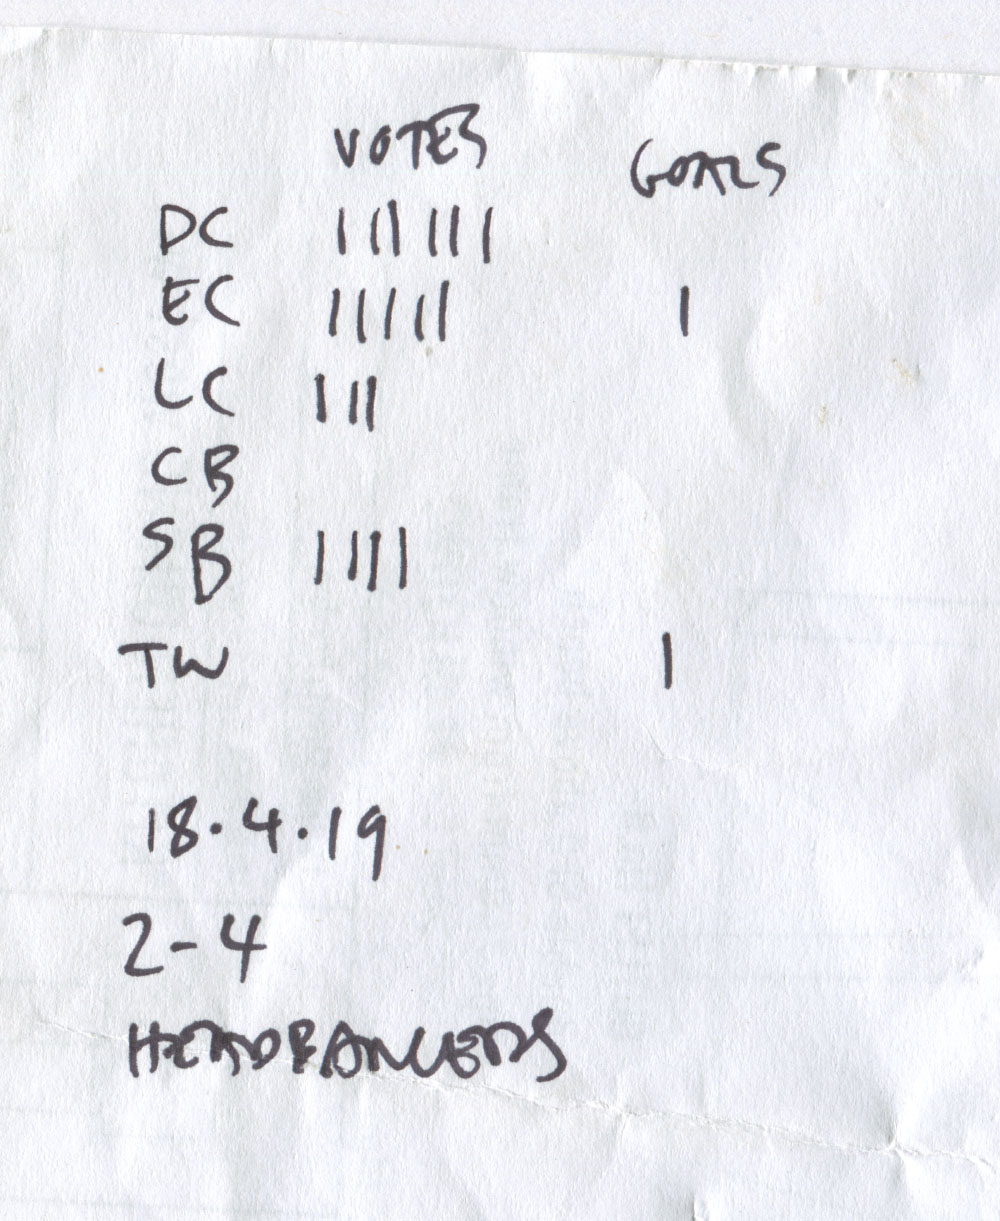 VOTES GOALS
DC I I I I I I
EC I I I I I I
LC I I I
CB
SB I I I I
TW I
18.4.19
2-4
HEADBANGERS